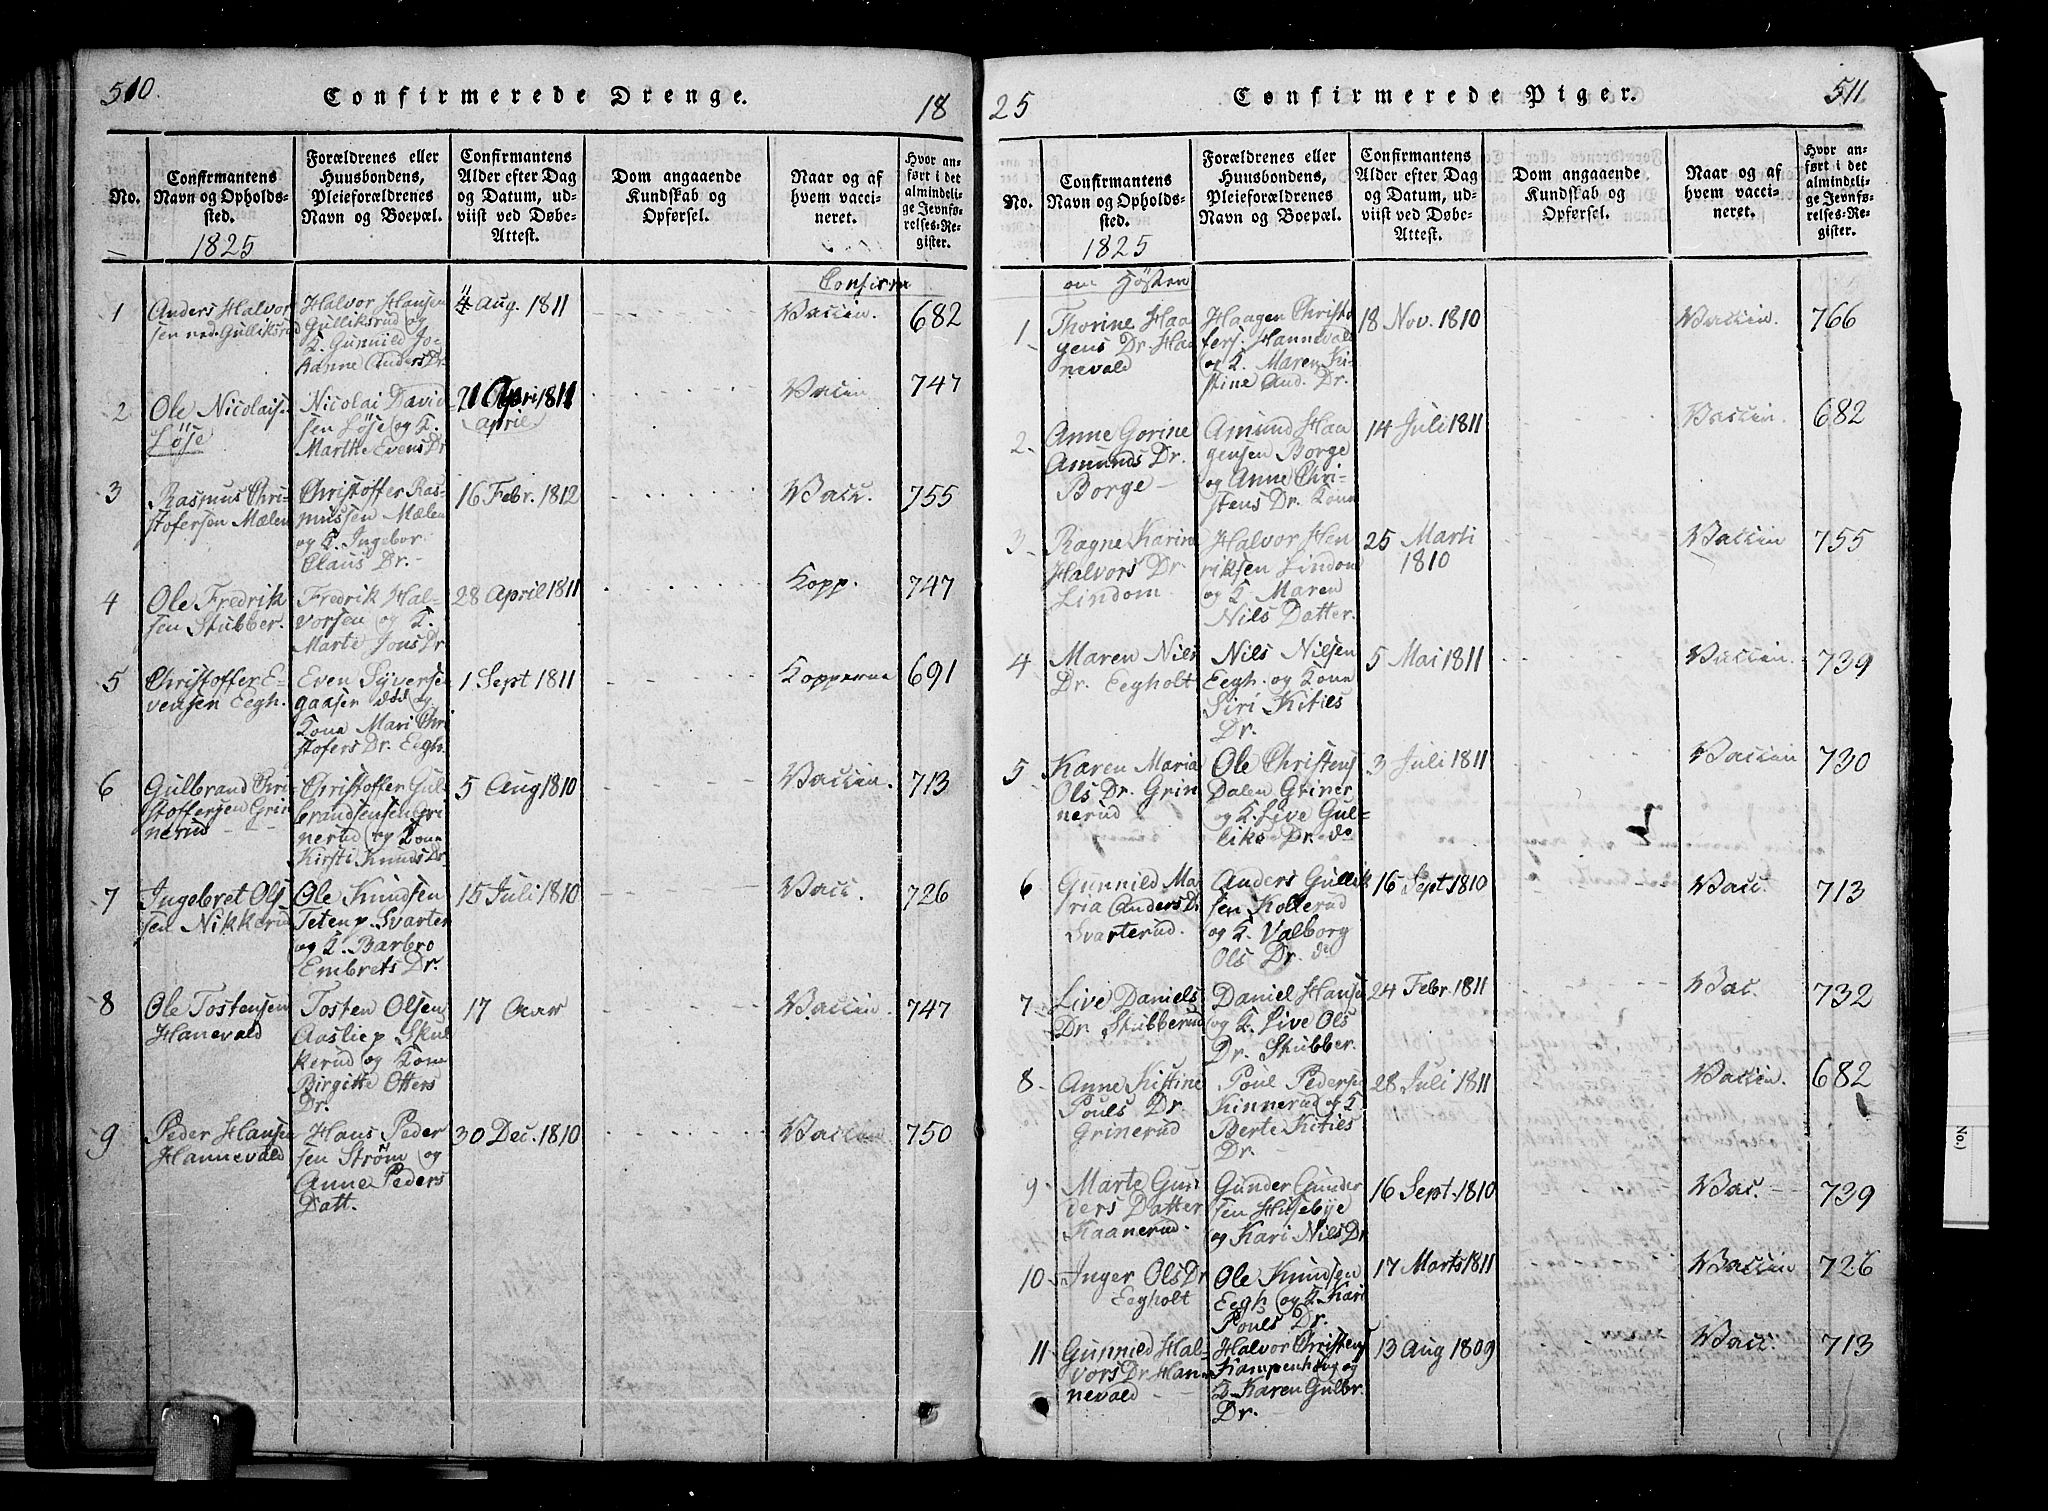 510.
Confirmerede Drenge.
18
No.
Confirmantens
Navn og Opholds-
sted.
1825
Forældrenes eller
Huusbondens,
Pleieforældrenes
Navn og Boepæl.
Confirmantens
Alder efter Dag
og Datum, ud-
viist ved Døbe-
Attest.
Dom angaaende
Kundskab og
Opførsel.
Naar og af
hvem vacci-
neret.
Hvor an-
ført i det
almindeli-
ge Jevnfø-
relses-Re-
gister.
Confirm
1
Anders Halvor
sen ned. Gulliksrud
Halvor Hansen
Gulliksrud og
K. Gunnild Jo-
hanne Anders Dr.
4 Aug. 1811
Vaccin.
682
2
Ole Nicolaisen
Löse
Nicolai David
sen Löse og K.
Marthe Evens Dr
21 April 1811
April
Vaccin
747
3
Rasmus Chri-
stofersen Mælen
Christoffer Ras-
mussen Mælen
og K. Ingebor
Claus Dr.
16 Febr. 1812
Vacc.
755
4
Ole Fredrik
sen Stubber.
Fredrik Hal-
vorsen og K.
Marte Jons Dr
28 April 1811
Kopp.
747
5
Christoffer E-
vensen Eegh.
Even Syversen
gaasen død og
Kona Mari Chri
stofers Dr. Eegh.
1 Sept 1811
Kopperne
691
6
Gulbrand Chri-
stoffersen Gri
nerud
Christoffer Gul
brandsen Gri
nerud og Kone
Kirsti Knuds Dr
5 Aug 1810
Vaccin.
713
7
Ingebret Ols
sen Nikkerud
Ole Knudsen
Teten p. Svarter
og K. Barbro
Embrets Dr.
15 Juli 1810
Vacc.
726
8
Ole Tostensen
Hanevald
Tosten Olsen
Aasliep Skul
kerud og Kone
Birgitte Otters
Dr.
17 Aar
Vaccin.
747
9
Peder Hansen
Hannevald
Hans Peder
sen Strøm og
Anne Peders
Datt.
30 Dec. 1810
Vaccin
750
25
Confirmerede Piger.
511
No.
Confirmantens
Navn og Opholds-
sted.
1825
Forældrenes eller
Huusbondens,
Pleieforældrenes
Navn og Boepæl.
Confirmantens
Alder efter Dag
og Datum, ud-
viist ved Døbe-
Attest.
Dom angaaende
Kundskab og
Opførsel.
Naar og af
hvem vacci-
neret.
Hvor an-
ført i det
almindeli-
ge Jevnfø-
relses-Re-
gister.
om Hösten
1
Thorine Haa
gens Dr. Han
nevald
Haagen Christo
fers. Hannevald
og K. Maren Ki-
stine And. Dr.
18 Nov. 1810
Vaccin.
766
2
Anne Gorine
Amunds Dr.
Borge
Amund Haa
gensen Borge
og Anne Chri-
stens Dr. Kone
14 Juli 1811
Vaccin.
682
3
Ragne Karine
Halvors Dr
Lindom
Halvor Hen
riksen Lindom
og K. Maren
Nils Datter.
25 Marti
1810
Vaccin
755
4
Maren Nils
Dr. Eegholt
Nils Nilsen
Eegh. og Kone
Siri Kities
Dr.
5 Mai 1811
Vaccin.
739
5
Karen Maria
Ols Dr. Grin
nerud
Ole Christens
Dalen Griner
og K. Live Gul-
liks Dr. do
3 Juli 1811
Vaccin
730
6
Gunnild Ma
ria Anders D.
Svarterud.
Anders Gullik
sen Kollerud
og K. Valborg
Ols Dr. do
16 Sept 1810
Vacc.
713
7
Live Daniels
Dr. Stubberud
Daniel Hansen
og K. Live Ols
Dr. Stubber.
24 Febr. 1811
Vac.
732
8
Anne Kistine
Pouls Dr.
Grinerud
Poul Pedersen
Kinnerud og K.
Berte Kities
Dr.
28 Juli 1811
Vaccin.
682
9
Marte Gun
ders Datter
Kaanerud.
Gunder Gunder
sen Husebye
og Kari Nils Dr
16 Sept. 1810
Vac.
739
10
Inger Ols Dr
Eegholt
Ole Knudsen
Eegh og K. Kari
Pouls Dr.
17 Marts 1811
Vaccin
726
11
Gunnild Hal-
vors Dr. Han-
nevald
Halvor Christens
Kampenhaug og
K. Karen Gulbr.
Dr.
13 Aug 1809
Vacc.
713
No.)